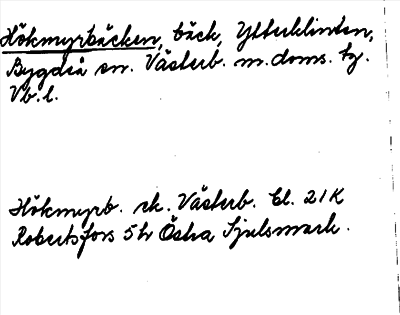 Hökmyrbäcken, bäck, Ytterklinten,
Bygdeå sn. Västerb. m.doms. tg.
Vb.l.
Hökmyrb. ek. Västerb. bl. 21K
Robertsfors 5h Östra Sjulsmark.